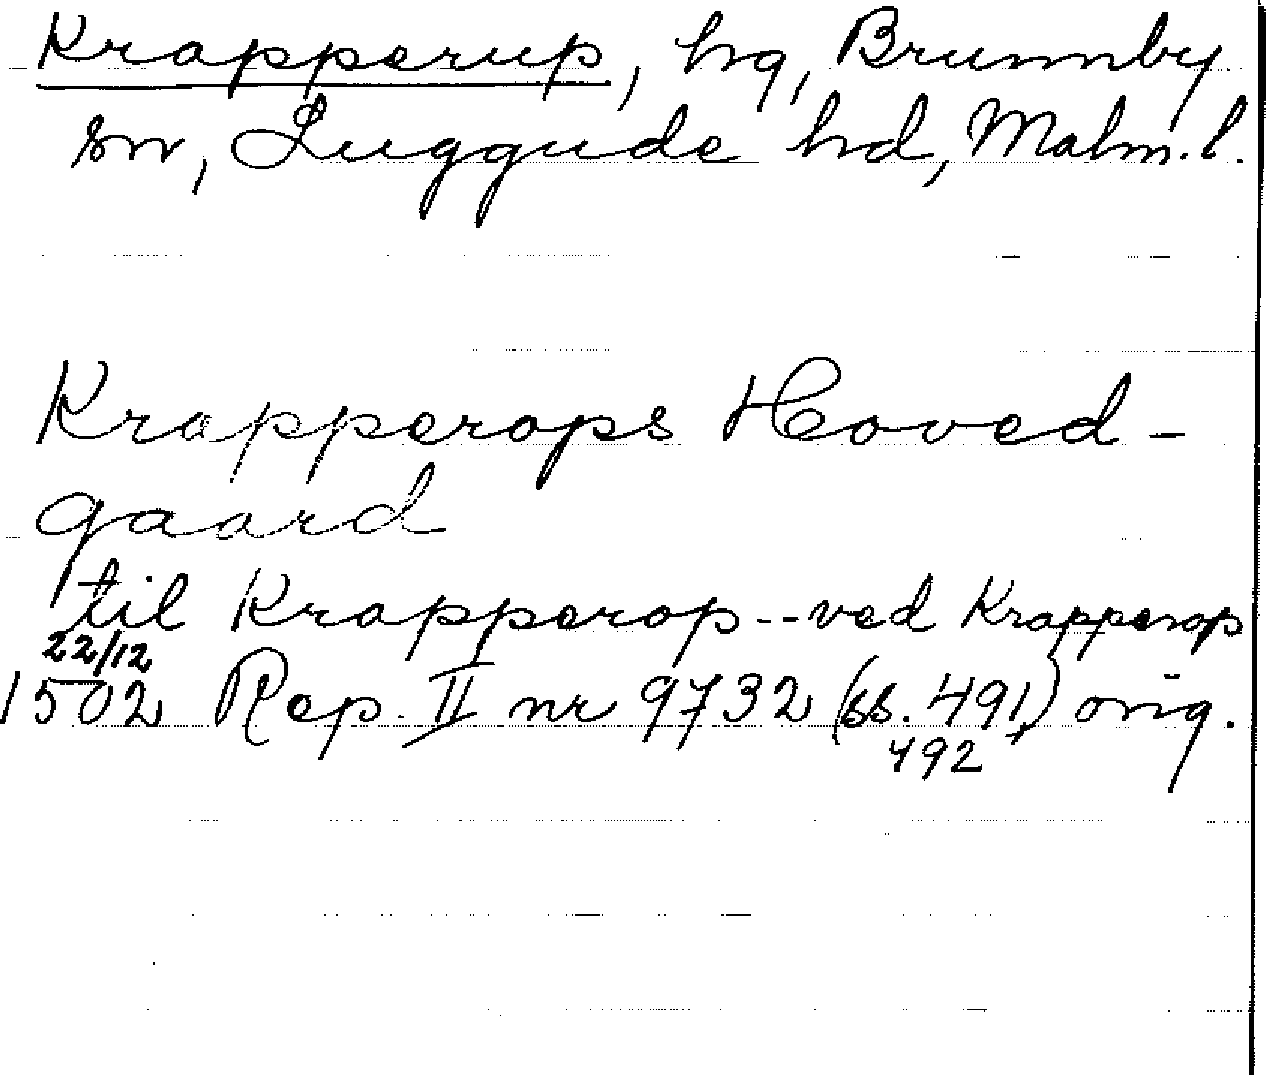 Krapperup, hg, Brunnby
sn, Luggude hd, Malm. l.
Krapperops Hoved-
gaard
til Krapperop--ved Krapperop
22/12
1502 Rep. II nr 9732 (ss. 491,) orig.
492